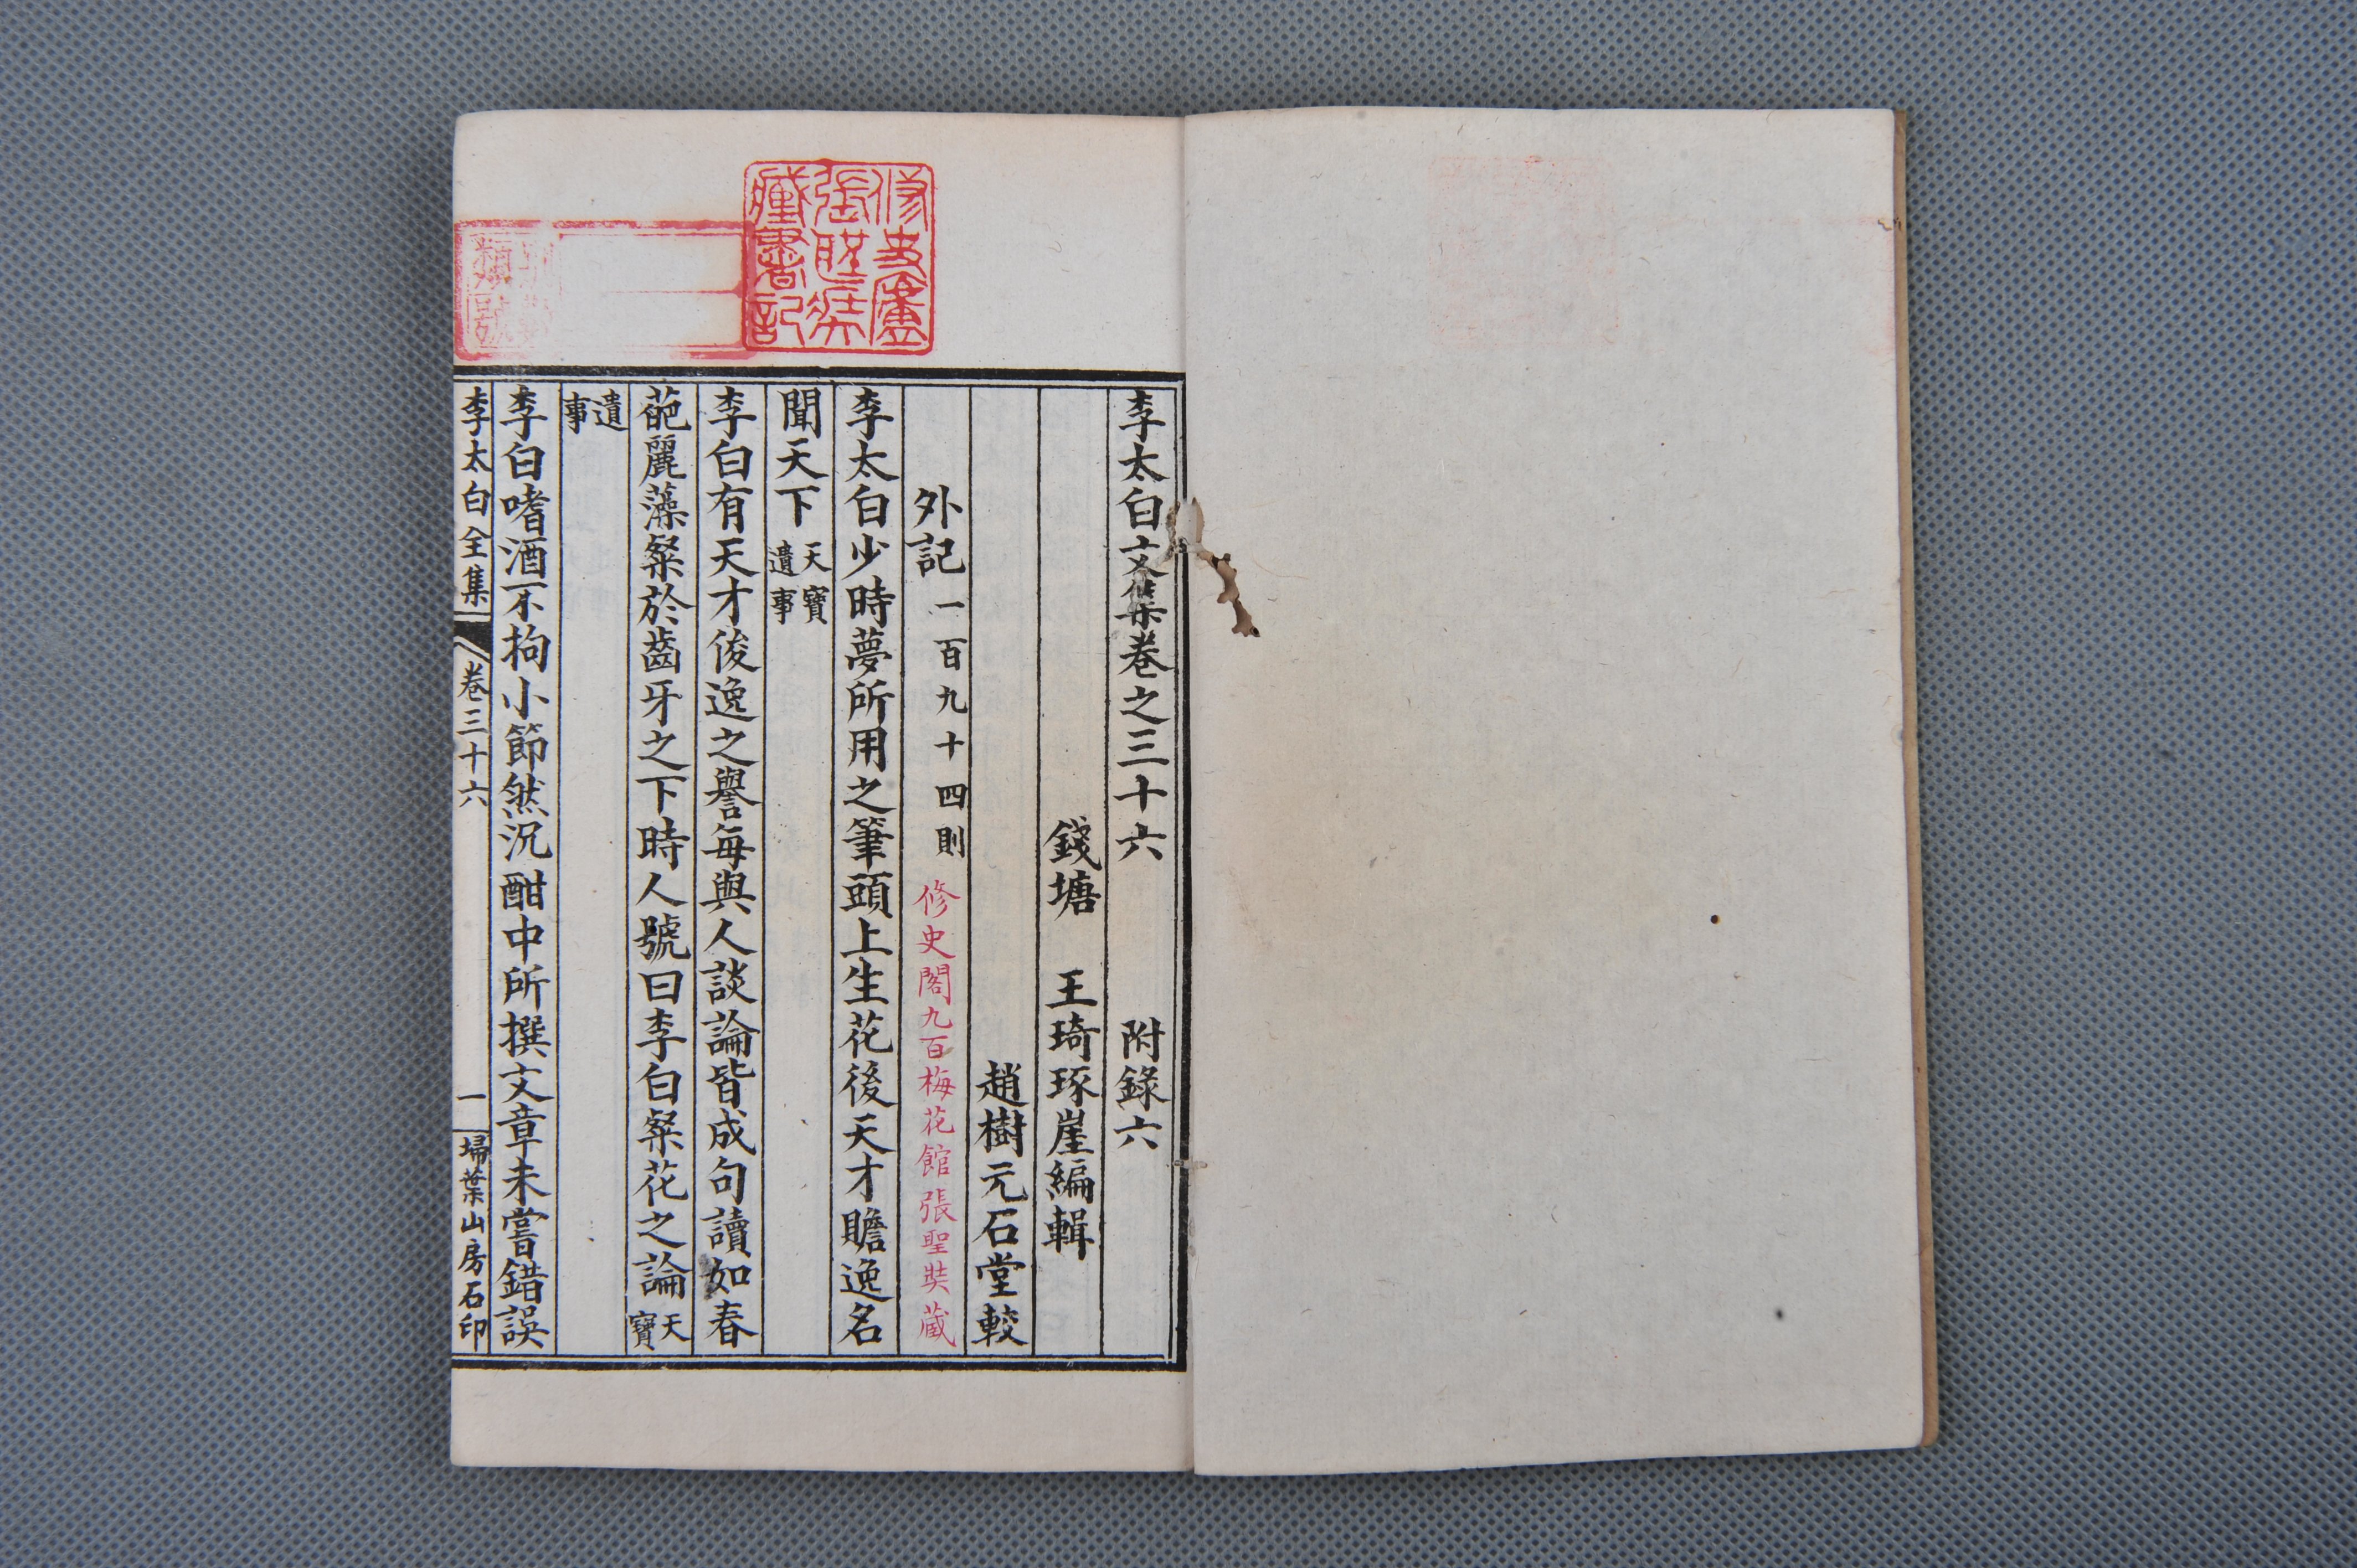 李太白文集卷之三十六 附錄六
錢塘 王琦琢崖編輯
趙樹元石堂較
外記 一百九十四則 修史閣九百梅花館張聖奘藏
李太白少時夢所用之筆頭上生花後天才贍逸名
聞天下 天寶遺事
李白有天才俊逸之譽每與人談論皆成句讀如春
葩麗藻粲於齒牙之下時人號曰李白粲花之論 天寶
遺事
李白嗜酒不拘小節然沉酣中所撰文章未嘗錯誤
李太白全集 卷三十六 一 埽葉山房石印
修史廬
張聖奘
藏書記
類
號